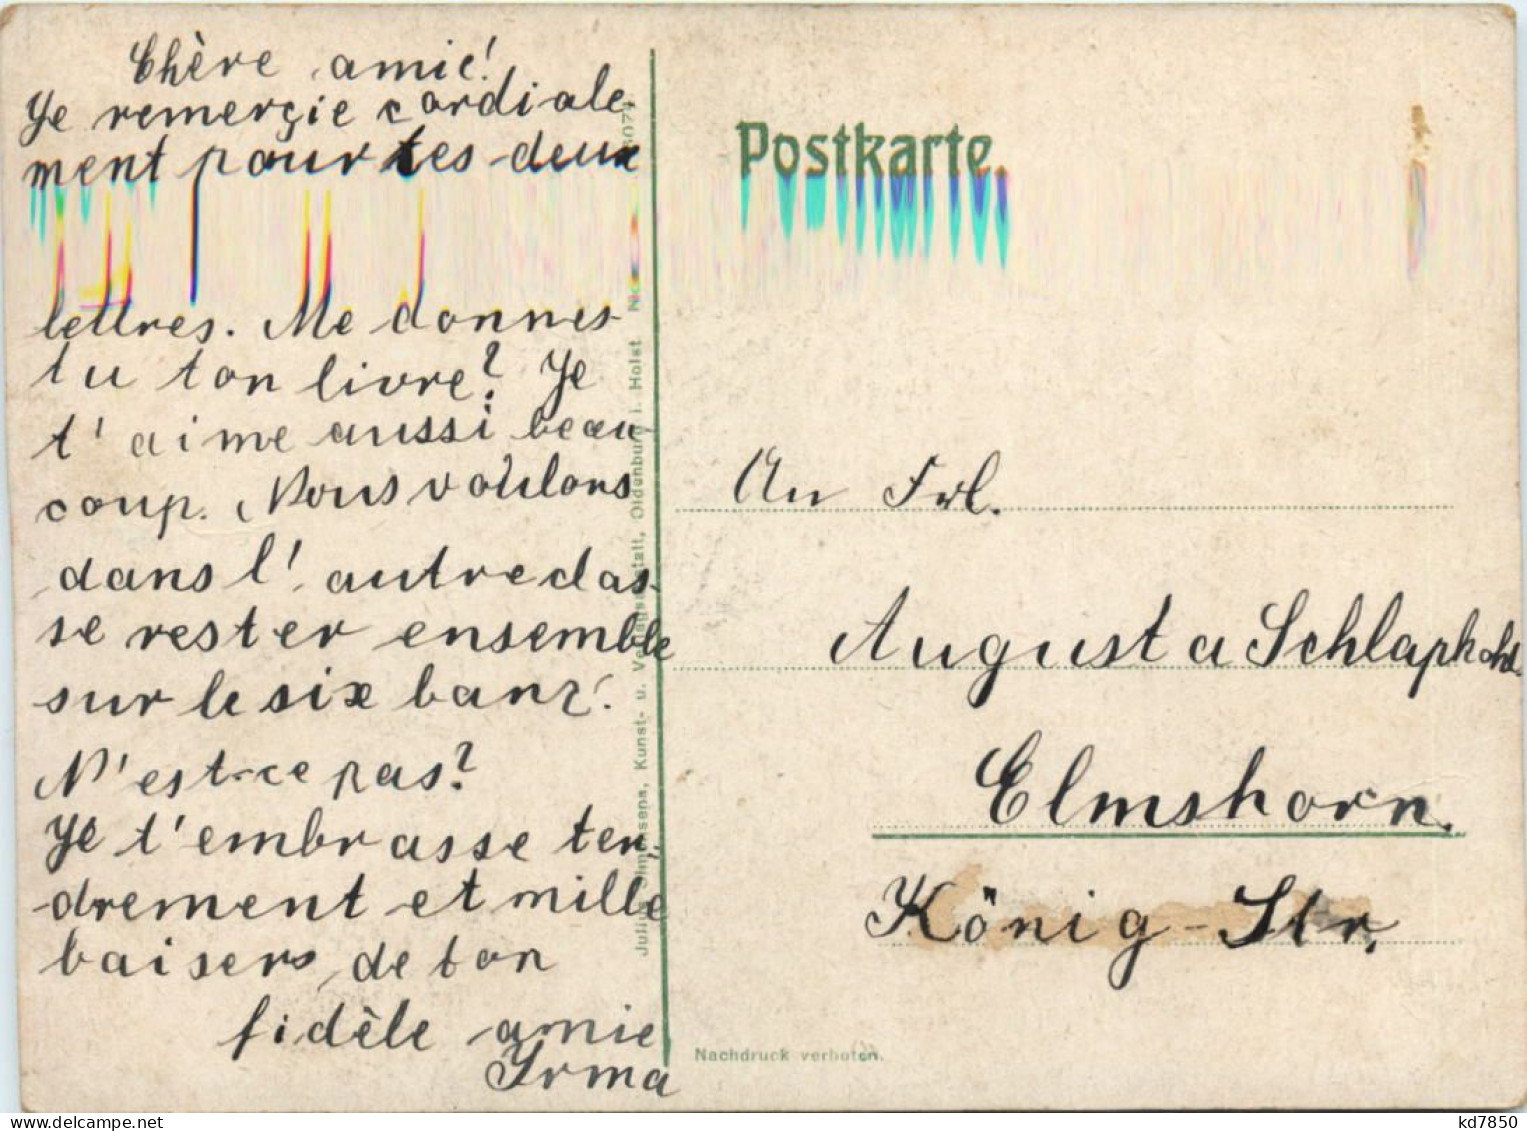 Chère amie!
Je remerçie cordiale-
ment pour tes deux
lettres. Me donnes
tu ton livre? Je
t'aime aussi beau-
coup. Nous voulons
dans l'autre clas-
se rester ensemble
sur le six banz!
N'est-ce pas?
Je t'embrasse ten-
drement et mille
baisers de ton
fidèle amie
Irma
Oldenburg i. Holst
Postkarte.
An Frl.
Augusta Schlapkohl
Elmshorn.
König-Str.
Nachdruck verboten.
delcampe.net
kd7850